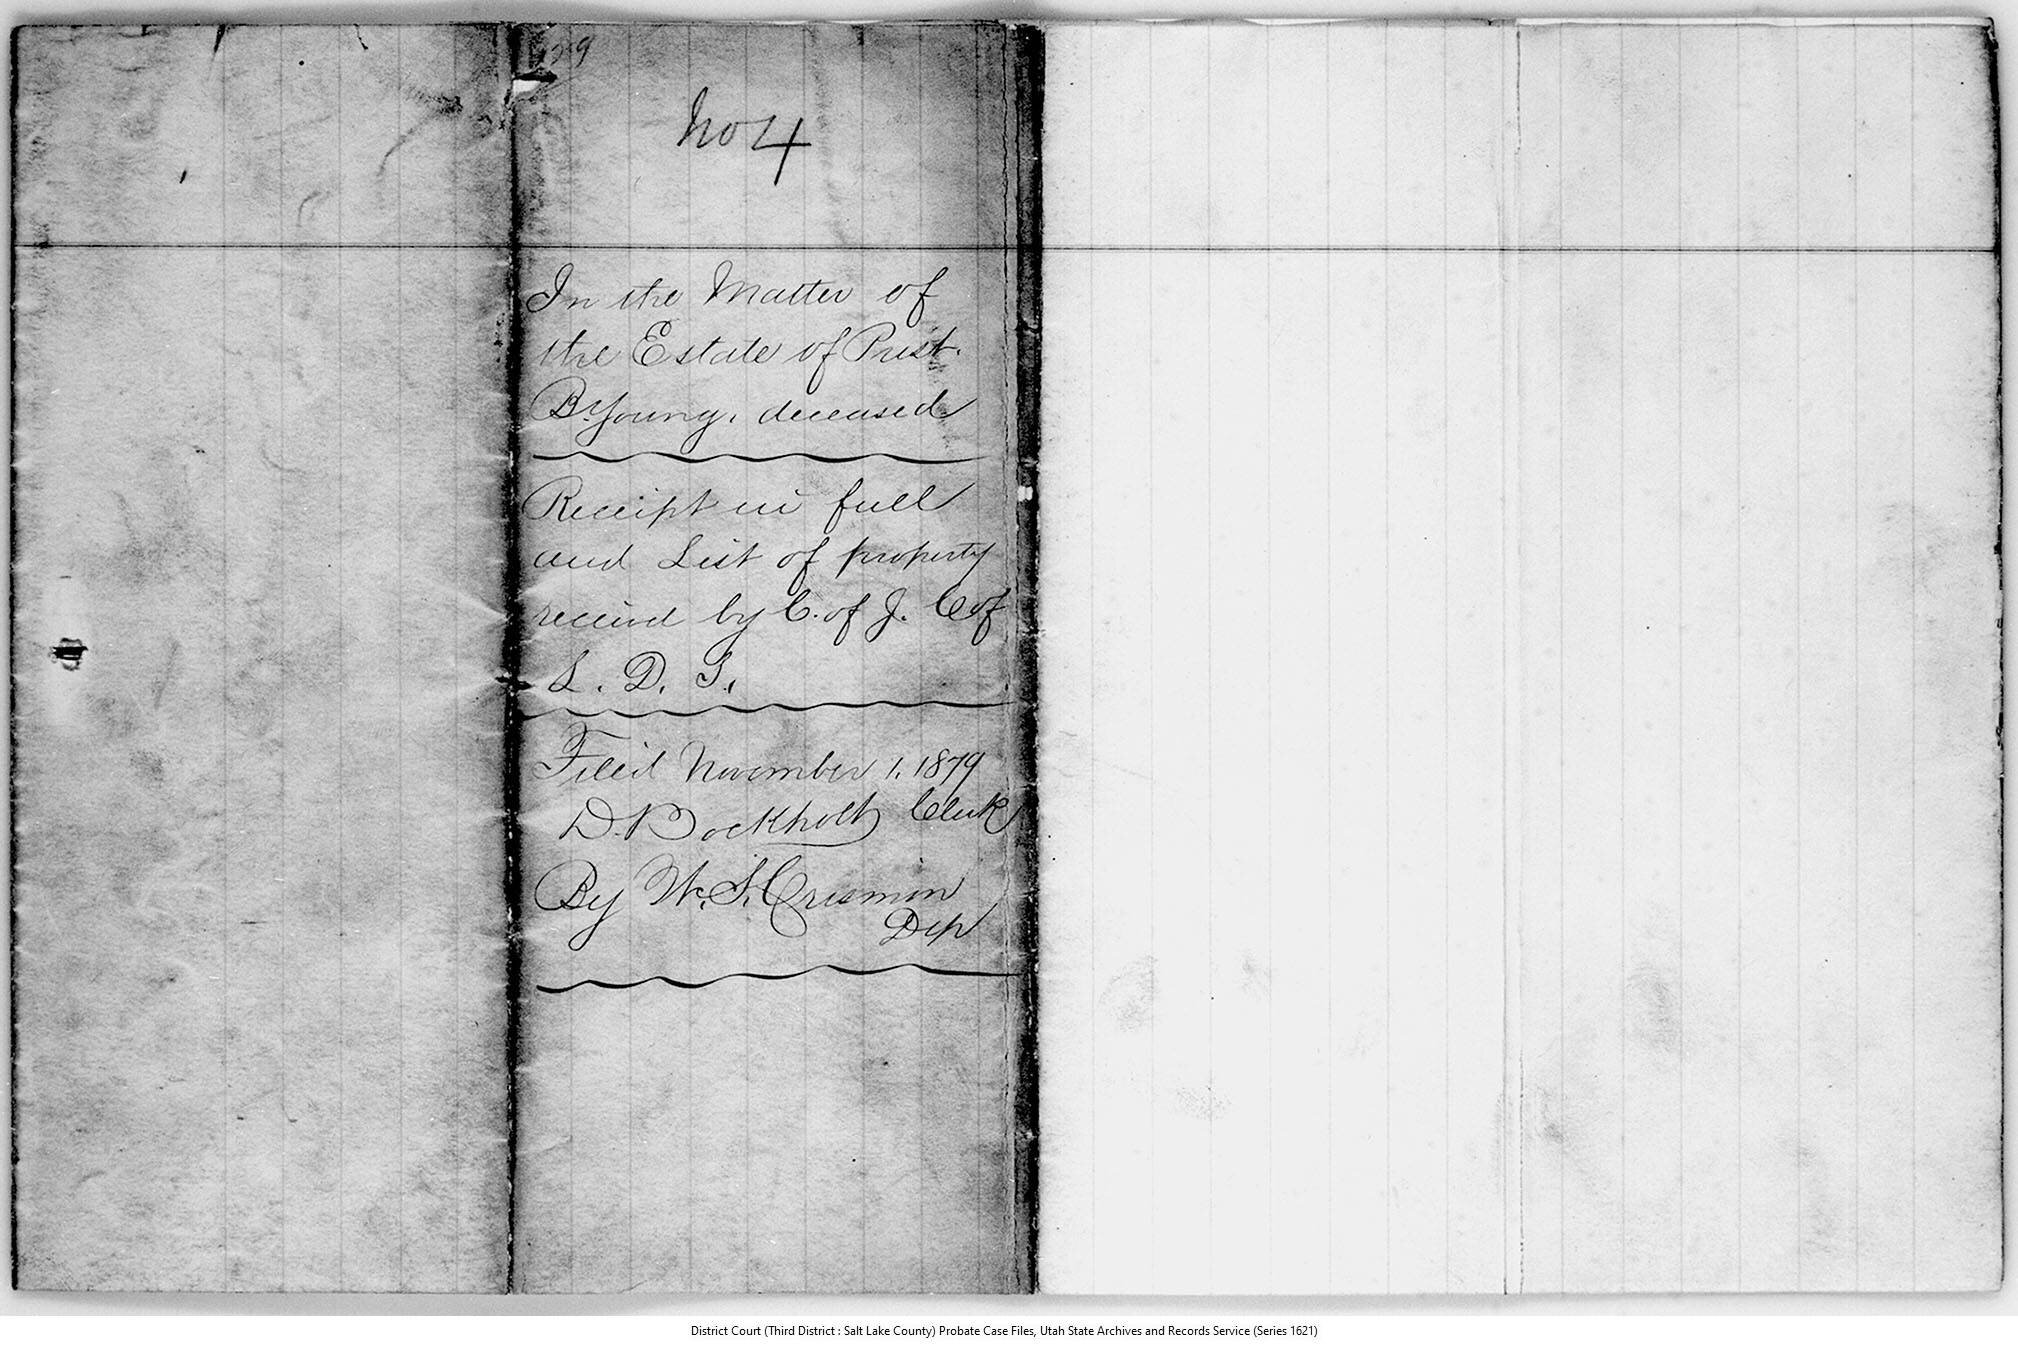 No 4
In the Matter of
the Estate of Prest.
B. Young, deceased
Receipt in full
and List of property
received by C. of J. C of
L. D. S.
Filed November 1, 1879
D. Bockholt Clerk
By W. S. Crismon
Dep
District Court (Third District : Salt Lake County) Probate Case Files, Utah State Archives and Records Service (Series 1621)